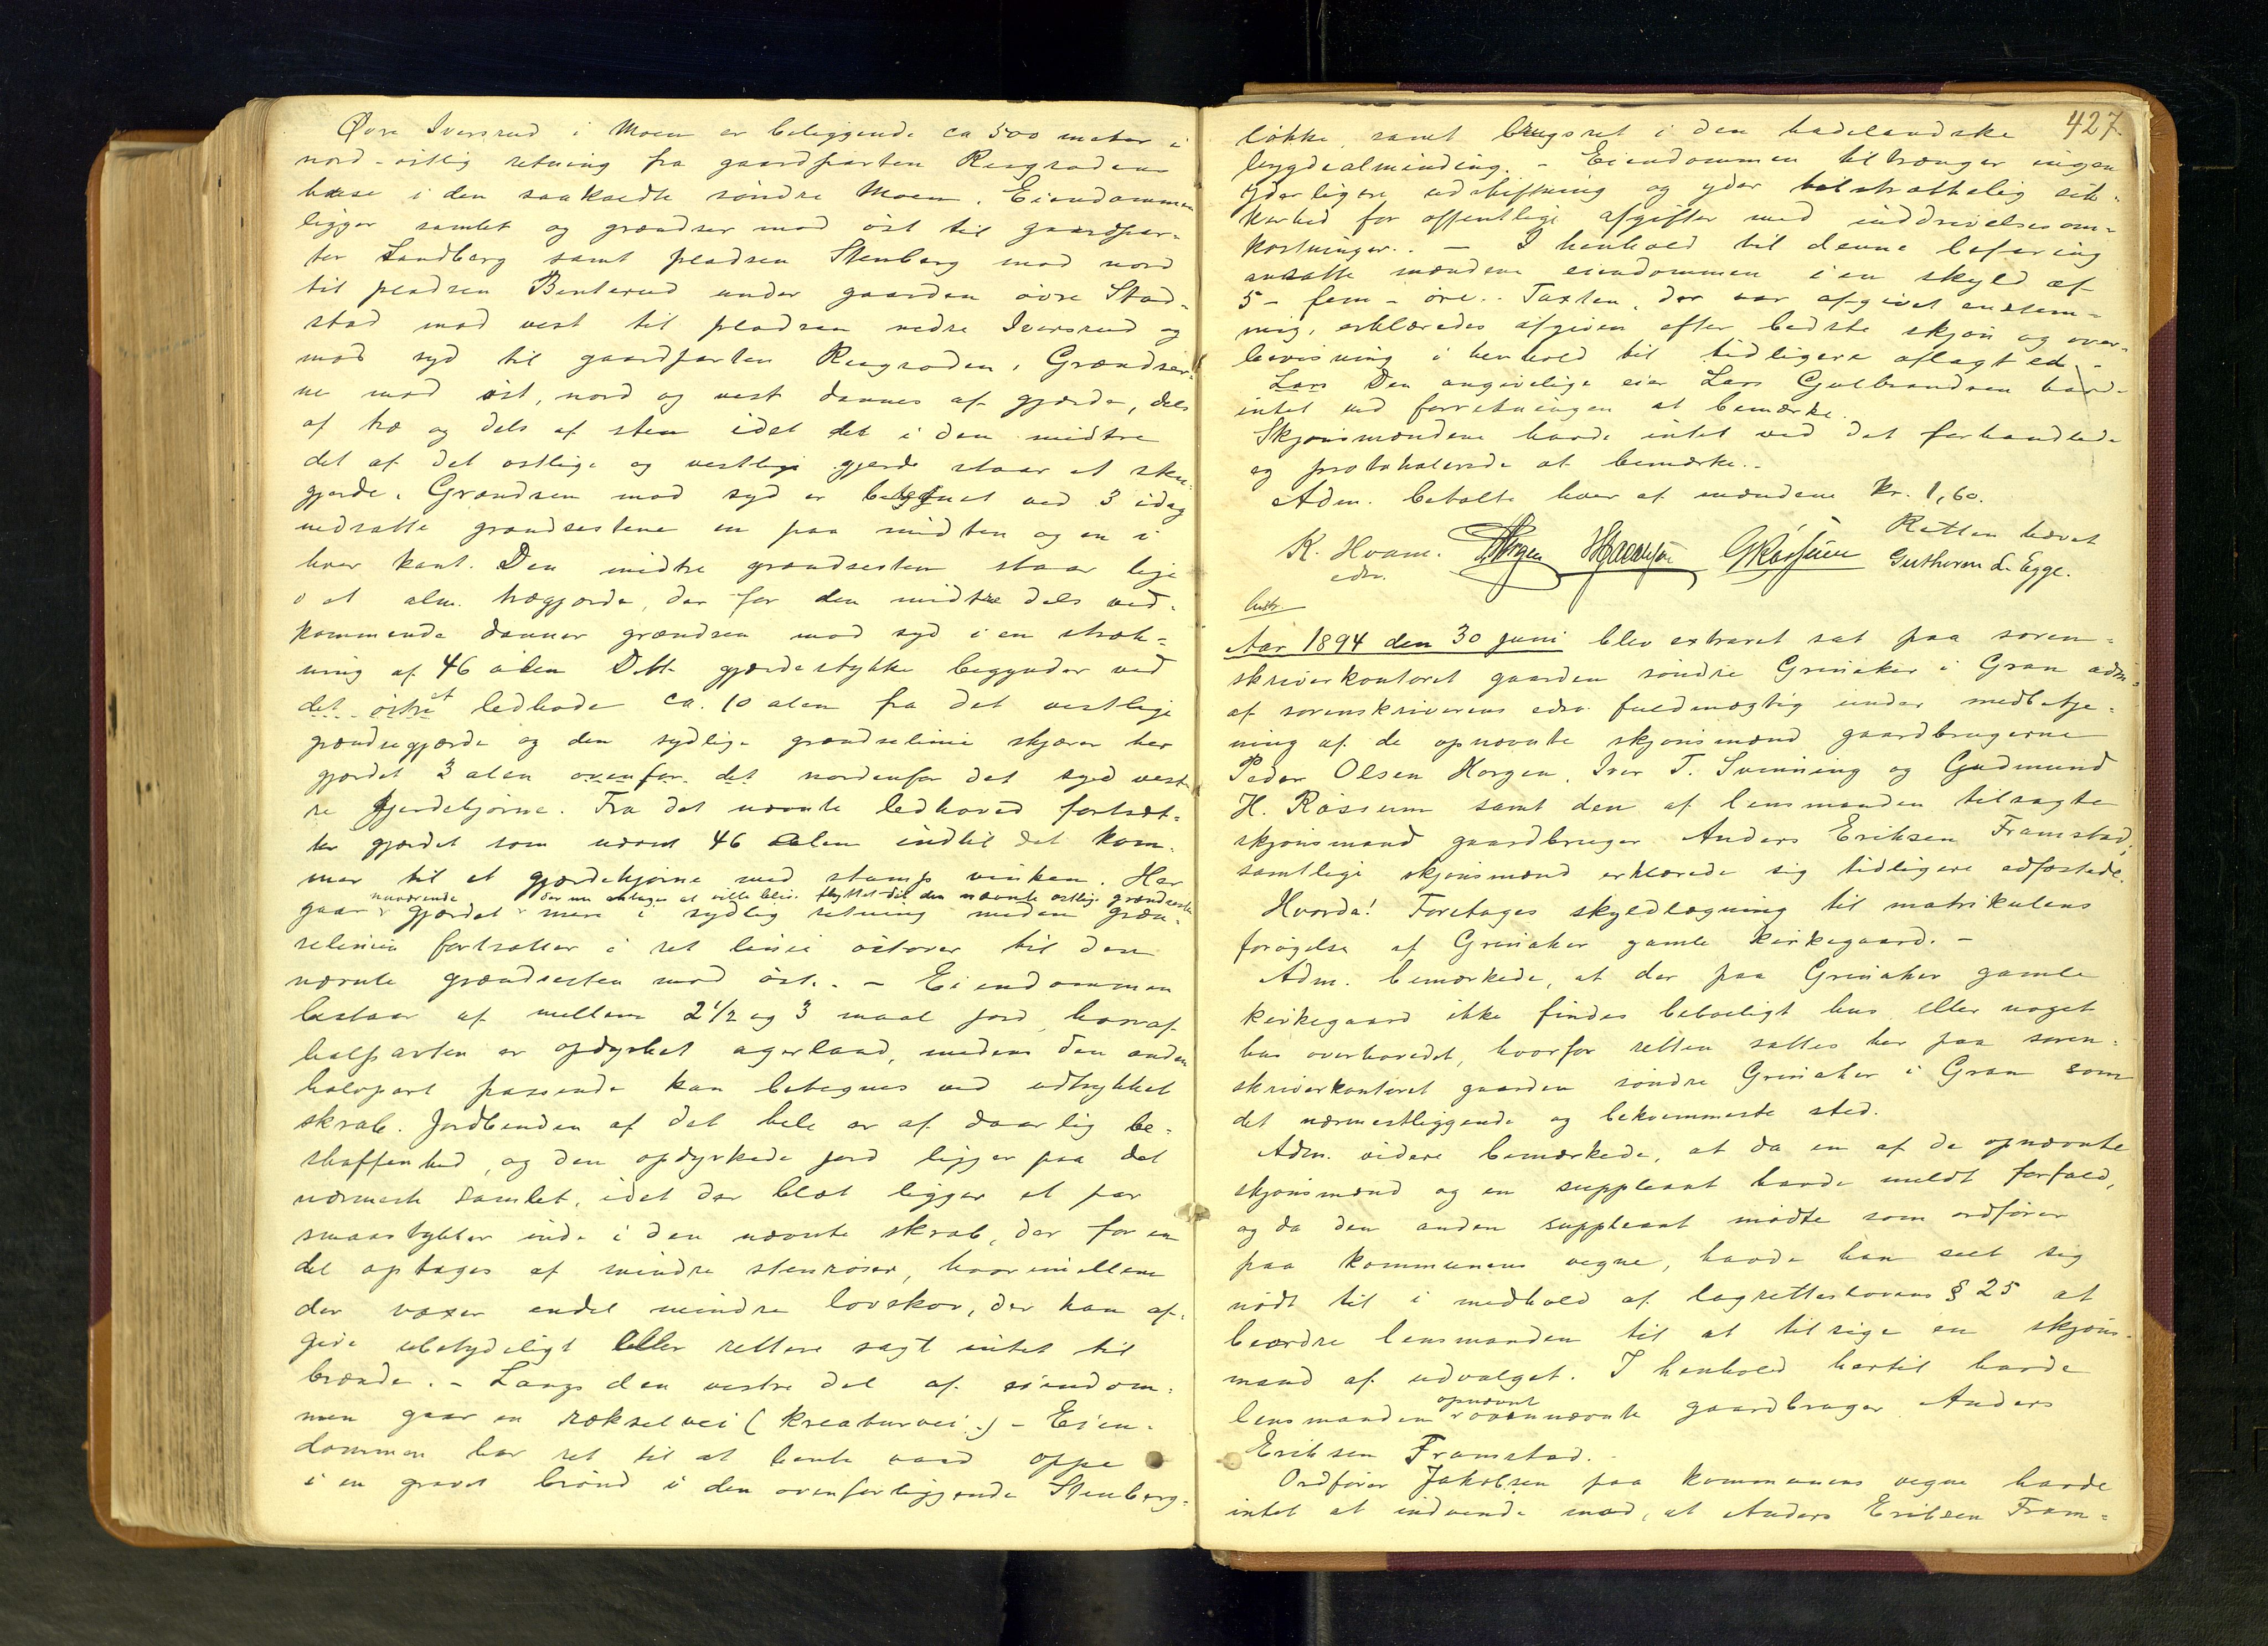 Øvre Iversrud i Moen er beliggende ca 500 meter i
nord-østlig retning fra gaardparten Raagraden
huse i den saakaldte søndre Moen. Eiendommen
ligger samlet og grændser mod øst til gaardpar-
ten Sandberg samt pladsen Stenberg mod nord
til pladsen Benterud under gaarden øvre Stad-
stad mod vest til pladsen nedre Iversrud og
mod syd til gaardparten Raagraden. Grændser-
ne mod øst, nord og vest dannes af gjærde, dels
af træ og dels af sten idet det i den midtre
del af det østlige og vestlige gjerde staar et sten
gjerde. Grændsen mod syd er betegnet ved 3 idag
nedsatte grændsestene en paa midten og en i
hver kant. Den midtre grændsesten staar lige
i et alm. trægjærde, der for den midtre dels ved-
kommende danner grændsen mod syd i en stræk-
ning af 46 alen Dette gjærdestykke begynder ved
det østre et ledhode ca. 10 alen fra det vestlige
grændsegjærde og den sydlige grændselinie skjærer her
gjerdet 3 alen ovenfor det nordenfor det syd vest
re gjerdehjørne. Fra det nævnte ledhoved fortsæt-
ter gjerdet som nævnt 46 alen indtil det kom-
mer til et gjærdehjørne med stump vinkel. Her
nuværende der nu antages at ville blive flyttet til den nævnte østlige grændsesten
gaar gjærdet mere i sydlig retning medens græn-
selinien fortsætter i ret linie østover til den
nævnte grændsesten mod øst. - Eiendommen
bestaar af mellem 2½ og 3 maal jord, hvoraf
halvparten er opdyrket agerland, medens den anden
halvpart passende kan betegnes ved udtrykket
skrab. Jordbunden af det hele er af daarlig be-
skaffenhed, og den opdyrkede jord ligger paa det
nærmeste samlet, idet der blot ligger et par
smaastykker inde i den nævnte skrab, der for en
del optages af mindre stenrøser, hvorimellem
der voxer endel mindre løvskov, der kan af-
give ubetydeligt eller rettere sagt intet til
brænde. - Langs den vestre del af eiendom-
men gaar en rækselvei (kreaturvei.) - Eien-
dommen har ret til at hente vand oppe
i en gravet brønd i den ovenforliggende Stenberg-
427.
løkke, samt brugsret i den hadelandske
bygdealminding. - Eiendommen tiltrænger ingen
yderligere udskiftning og yder tilstrækkelig sik-
kerhed for offentlige afgifter med inddrivelsesom-
kostninger.. - I henhold til denne befaring
ansatte mændene eiendommen i en skyld af
5 - fem - øre.. Taxten, der var afgivet enstem-
mig, erklæredes afgiven efter bedste skjøn og over-
bevisning i henhold til tidligere aflagt ed.
Lars Den angivelige eier Lars Gulbrandsen havde
intet ved forretningen at bemærke.
Skjønsmændene havde intet ved det forhandlede
og protokolerede at bemærke..
Adm. betalte hver af mændene Kr. 1,60.
Retten hævet
K. Hvam. Horgen GRøssum Guthorm L. Egge.
edsv.
Aar 1894 den 30 juni blev extraret sat paa soren-
skriverkontoret gaarden søndre Grinaker i Gran adm.
af sorenskriverens edsv. fuldmægtig under medbetje-
ning af de opnævnte skjønsmænd gaardbrugerne
Peder Olsen Horgen, Iver T. Svinning og Gudmund
H. Røssum samt den af lensmanden tilsagte
skjønsmand gaardbruger Anders Eriksen Framstad;
samtlige skjønsmænd erklærede sig tidligere edfæstede.
Hvorda! Foretages skyldlægning til matrikulens
forøgelse af Grinaker gamle kirkegaard. -
Adm. bemærkede, at der paa Grinaker gamle
kirkegaard ikke findes beboeligt hus eller noget
hus overhovedet, hvorfor retten sættes her paa soren-
skriverkontoret gaarden søndre Grinaker i Gran som
det nærmestliggende og bekvemmeste sted.
Adm. videre bemærkede, at da en af de opnævnte
skjønsmænd og en suppleant havde meldt forfald,
og da den anden suppleant mødte som ordfører
paa kommunens vegne, havde han seet sig
nødt til i medhold af lagretteslovens § 25 at
beordre lensmanden til at tilsige en skjøns-
mand af udvalget. I henhold hertil havde
opnævnt
lensmanden ovennævnte gaardbruger Anders
Eriksen Framstad.
Ordfører Jakobsen paa kommunens vegne havde
intet at indvende mod, at Anders Eriksen Fram-